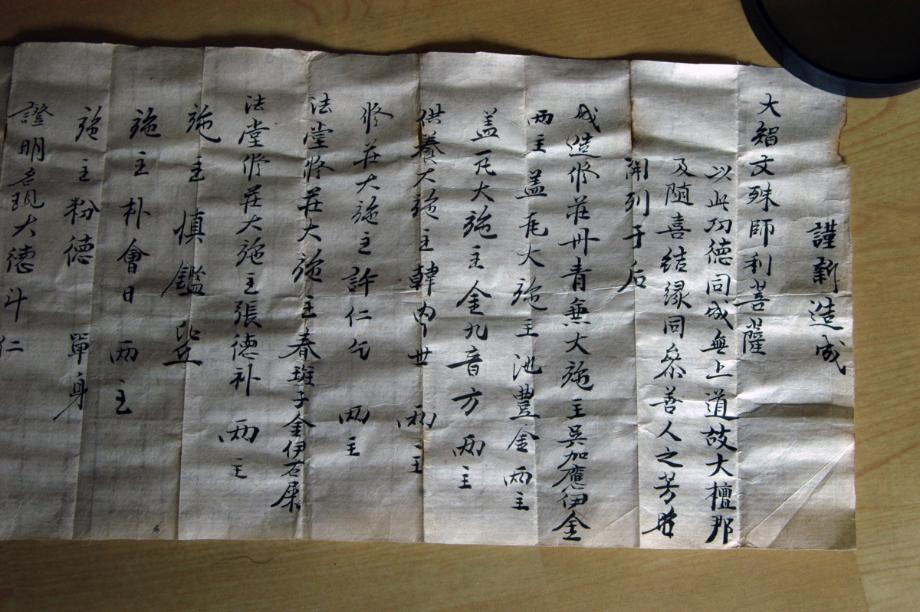 謹新造成
大智文殊師利菩薩
以此功德同成無上道故大檀那
及随喜結縁同叅善人之芳啣
開列于后
成造修莊丹青無大施主吳加應伊金
两主 盖瓦大施主池豊金 两主
盖瓦大施主金九音方 两主
供養大施主韓 世 两主
修莊大施主許仁 两主
法堂修莊大施主春班子金伊石屎
法堂修莊大施主張德补 两主
施主 慎鑑 比丘
施主朴會日 两主
施主粉德 單身
證明 現大德斗仁